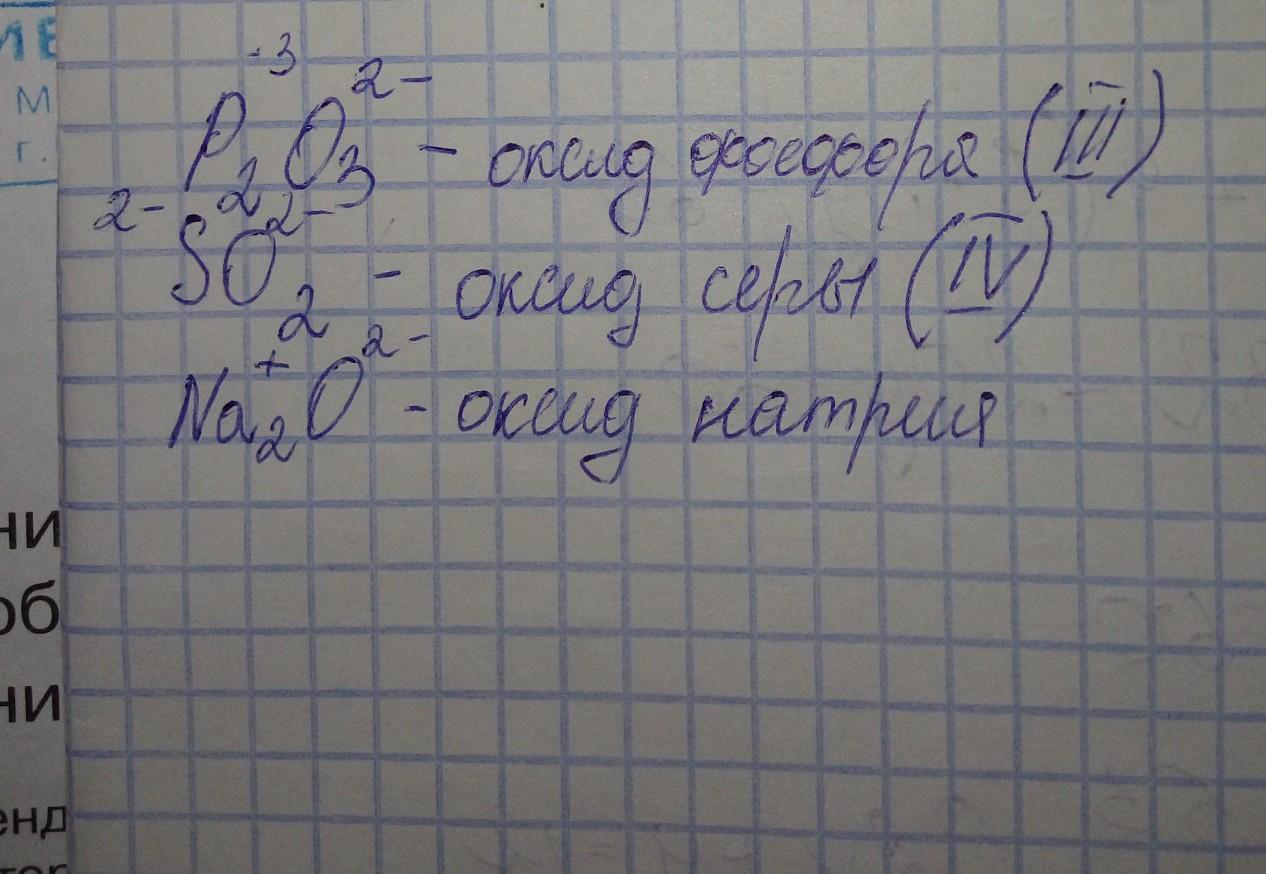 ИЕ
М
г.
P₂⁻³O₃²⁻ - оксид фосфора (III)
²⁻SO₂²⁻ - оксид серы (IV)
Na₂⁺O²⁻ - оксид натрия
ни
об
ни
енд